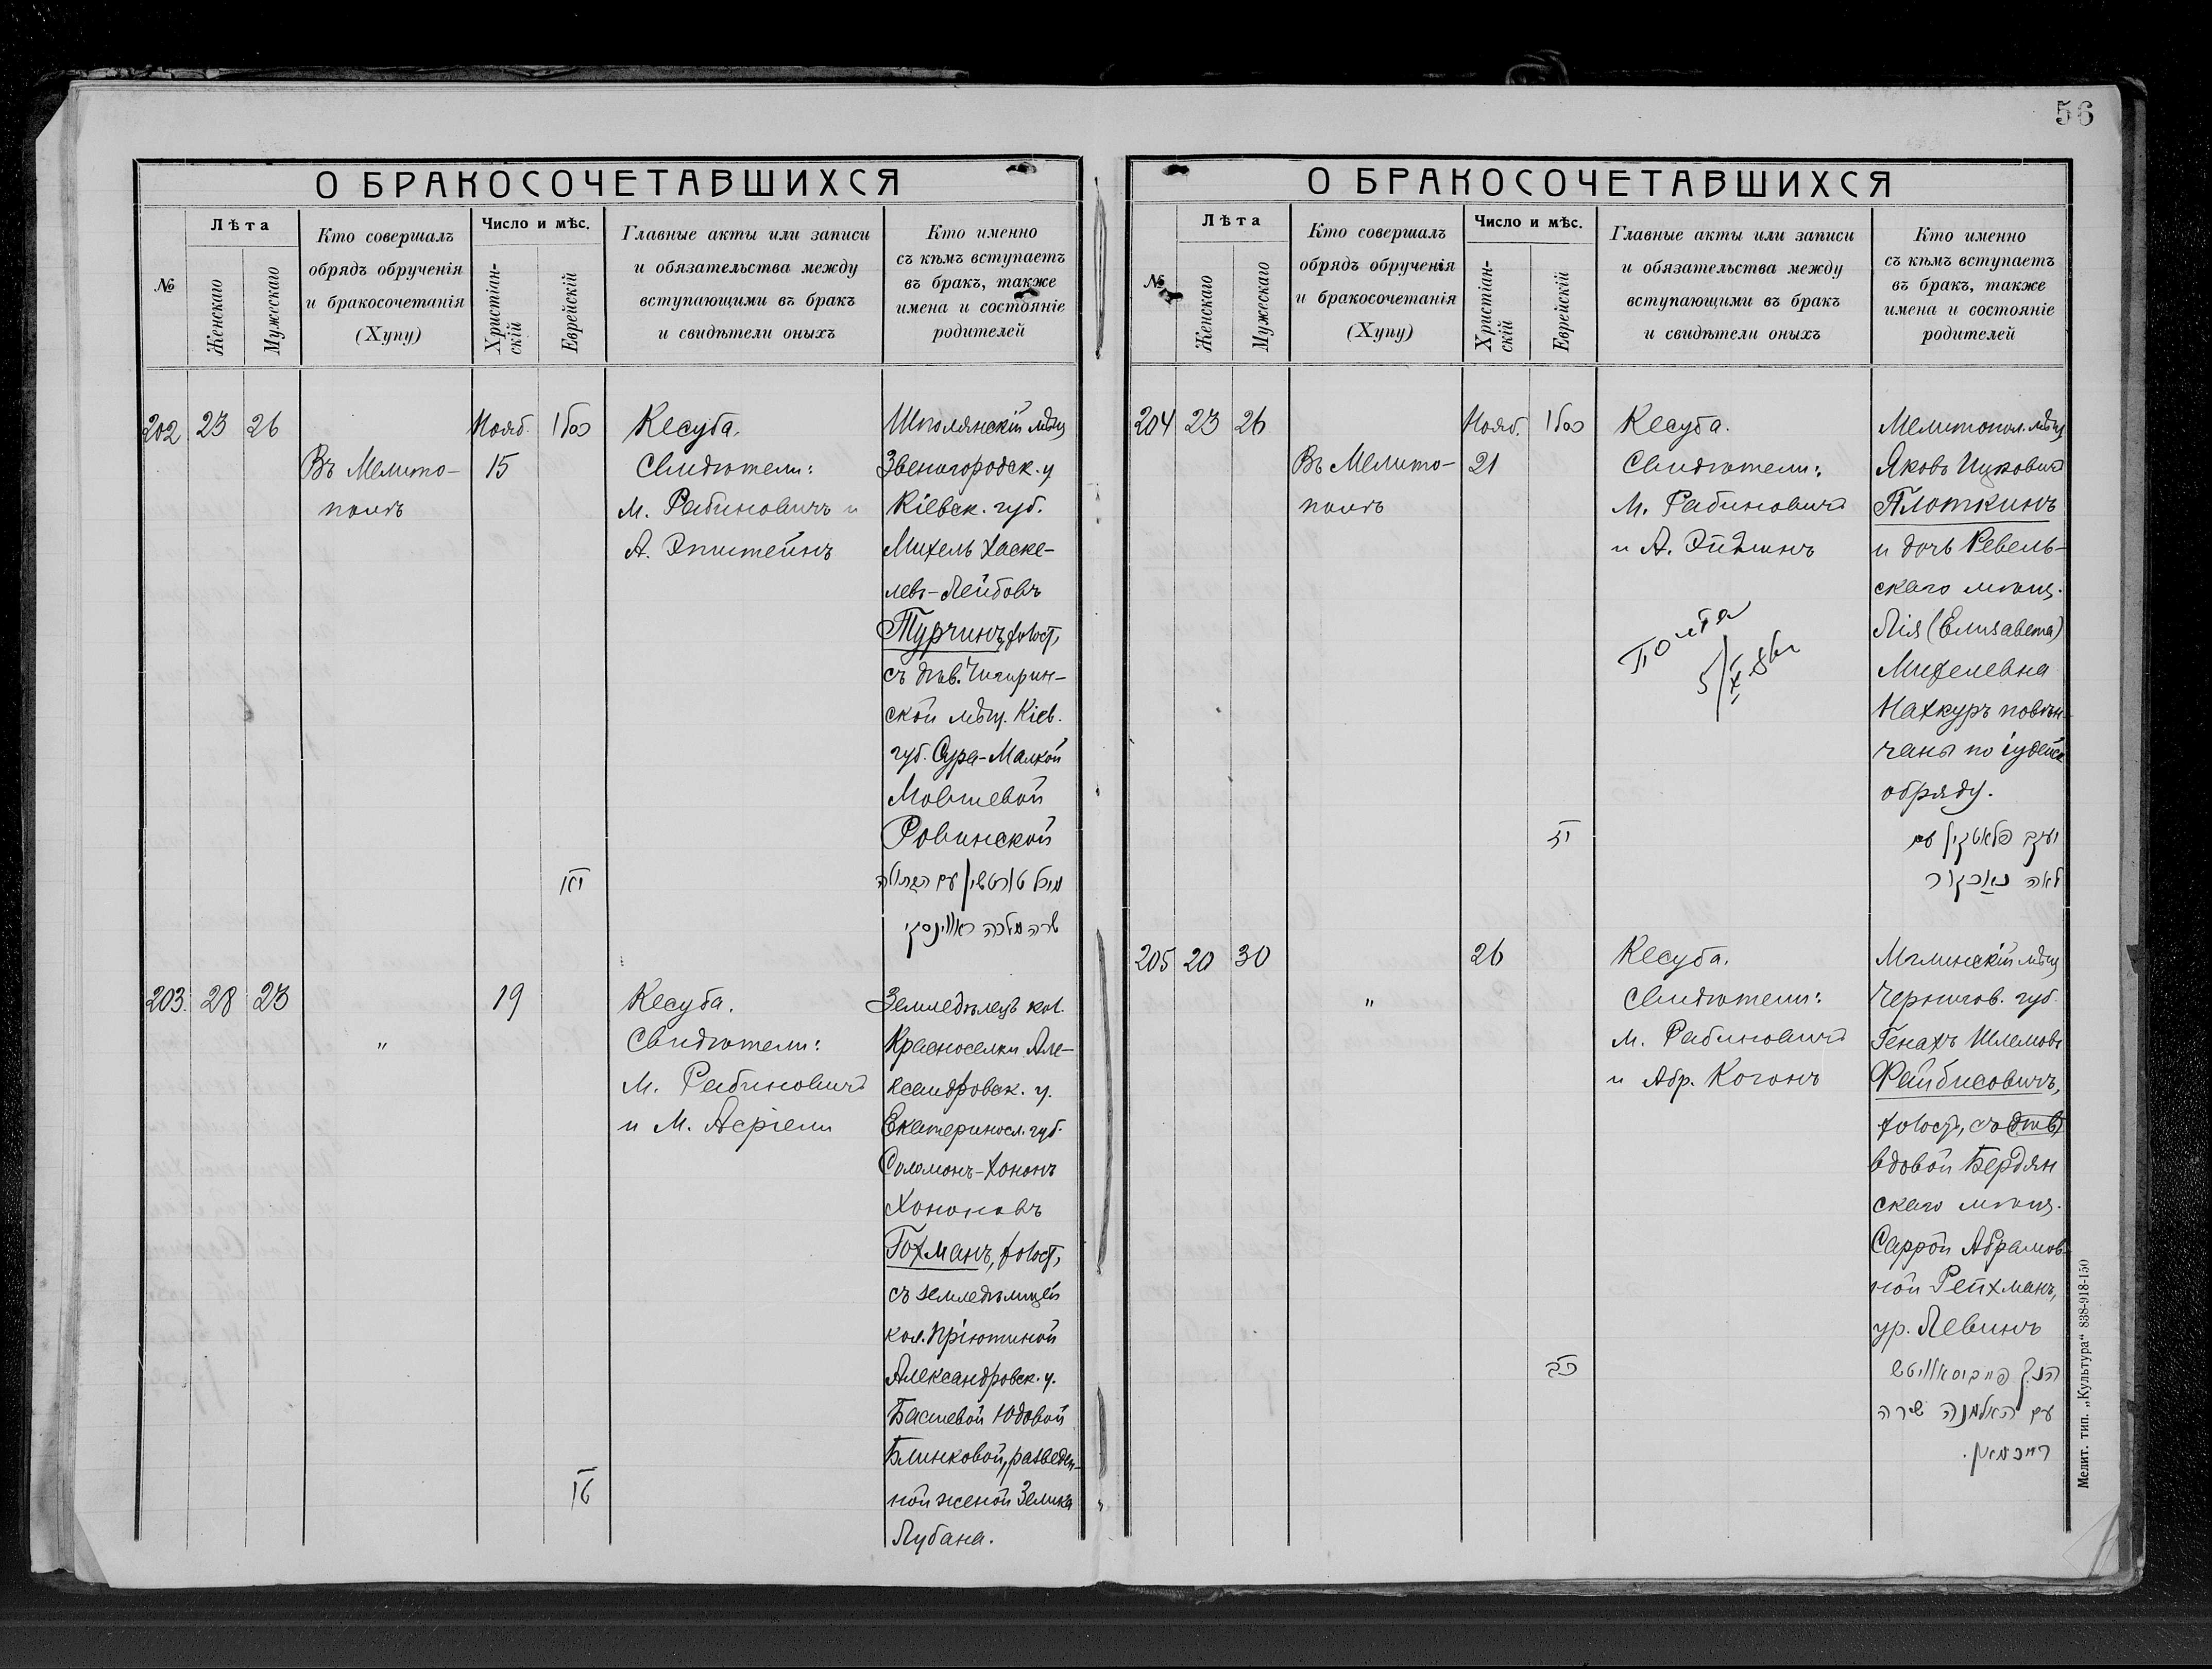 56
О БРАКОСОЧЕТАВШИХСЯ
№
Лѣта
Женскаго
Мужескаго
Кто совершалъ
обрядъ обрученія
и бракосочетанія
(Хупу)
Число и мѣс.
Христіан-
скій
Еврейскій
Главные акты или записи
и обязательства между
вступающими въ бракъ
и свидѣтели оныхъ
Кто именно
съ кѣмъ вступаетъ
въ бракъ, также
имена и состояніе
родителей
202 23 26
Въ Мелито-
полѣ
Нояб.
15
כסלו
יא
Кесуба.
Свидѣтели:
М. Рабиновичъ и
А. Эпштейнъ
Шполянскій мѣщ
Звенигородск. у
Кіевск. губ.
Михель Хаске-
левъ-Лейбовъ
Турчинъ, холост,
съ дѣв. Чигирин-
ской мѣщ. Кіев.
губ. Сура-Малкой
Мовшевой
Ровинской
מיכל טורטשין עם הבתולה
שרה מלכה ראווינסקי
203. 28 23
"
19
Кесуба.
Свидѣтели:
М. Рабиновичъ
и М. Асріели
Земледѣлецъ кол.
Красноселки Але-
ксандровск. у.
Екатериносл. губ.
Соломонъ-Хононъ
Хононовъ
Гохманъ, холост,
съ земледѣлицей
кол. Пріютиной
Александровск. у.
Басшевой Юдовой
Блинковой, разведен-
ной женой Зелика
Лубана.
О БРАКОСОЧЕТАВШИХСЯ
№
Лѣта
Женскаго
Мужескаго
Кто совершалъ
обрядъ обрученія
и бракосочетанія
(Хупу)
Число и мѣс.
Христіан-
скій
Еврейскій
Главные акты или записи
и обязательства между
вступающими въ бракъ
и свидѣтели оныхъ
Кто именно
съ кѣмъ вступаетъ
въ бракъ, также
имена и состояніе
родителей
204 23 26
Въ Мелито-
полѣ
Нояб.
21
כסלו
יז
Кесуба.
Свидѣтели:
М. Рабиновичъ
и А. Эйдлинъ
Мелитопол. мѣщ
Яковъ Ицковичъ
Плоткинъ
и дочь Ревель-
скаго мѣщ.
Лія (Елизавета)
Михелевна
Нахкуръ повѣн-
чаны по іудейск
обряду.
יעקב פלאטקין עם
לאה נאכקור
205 20 30
"
26
כב
Кесуба.
Свидѣтели:
М. Рабиновичъ
и Абр. Когонъ
Мглинскій мѣщ
Чернигов. губ.
Генахъ Шлемовъ
Фейбисовичъ,
холост, съ (дѣв)
вдовой Бердян
скаго мѣщ.
Саррой Абрамов-
ной Рейхманъ,
ур. Левинъ
הנך פייביסאוויטש
עם האלמנה שרה
רייכמאן.
Мелит. тип. „Культура“ 838-918-150